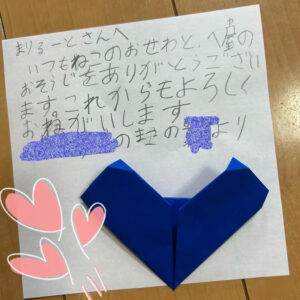 まりるーとさんへ
いつもねこのおせわと、へ屋の
おそうじをありがとうござい
ます。これからもよろしく
おねがいします
のまの より